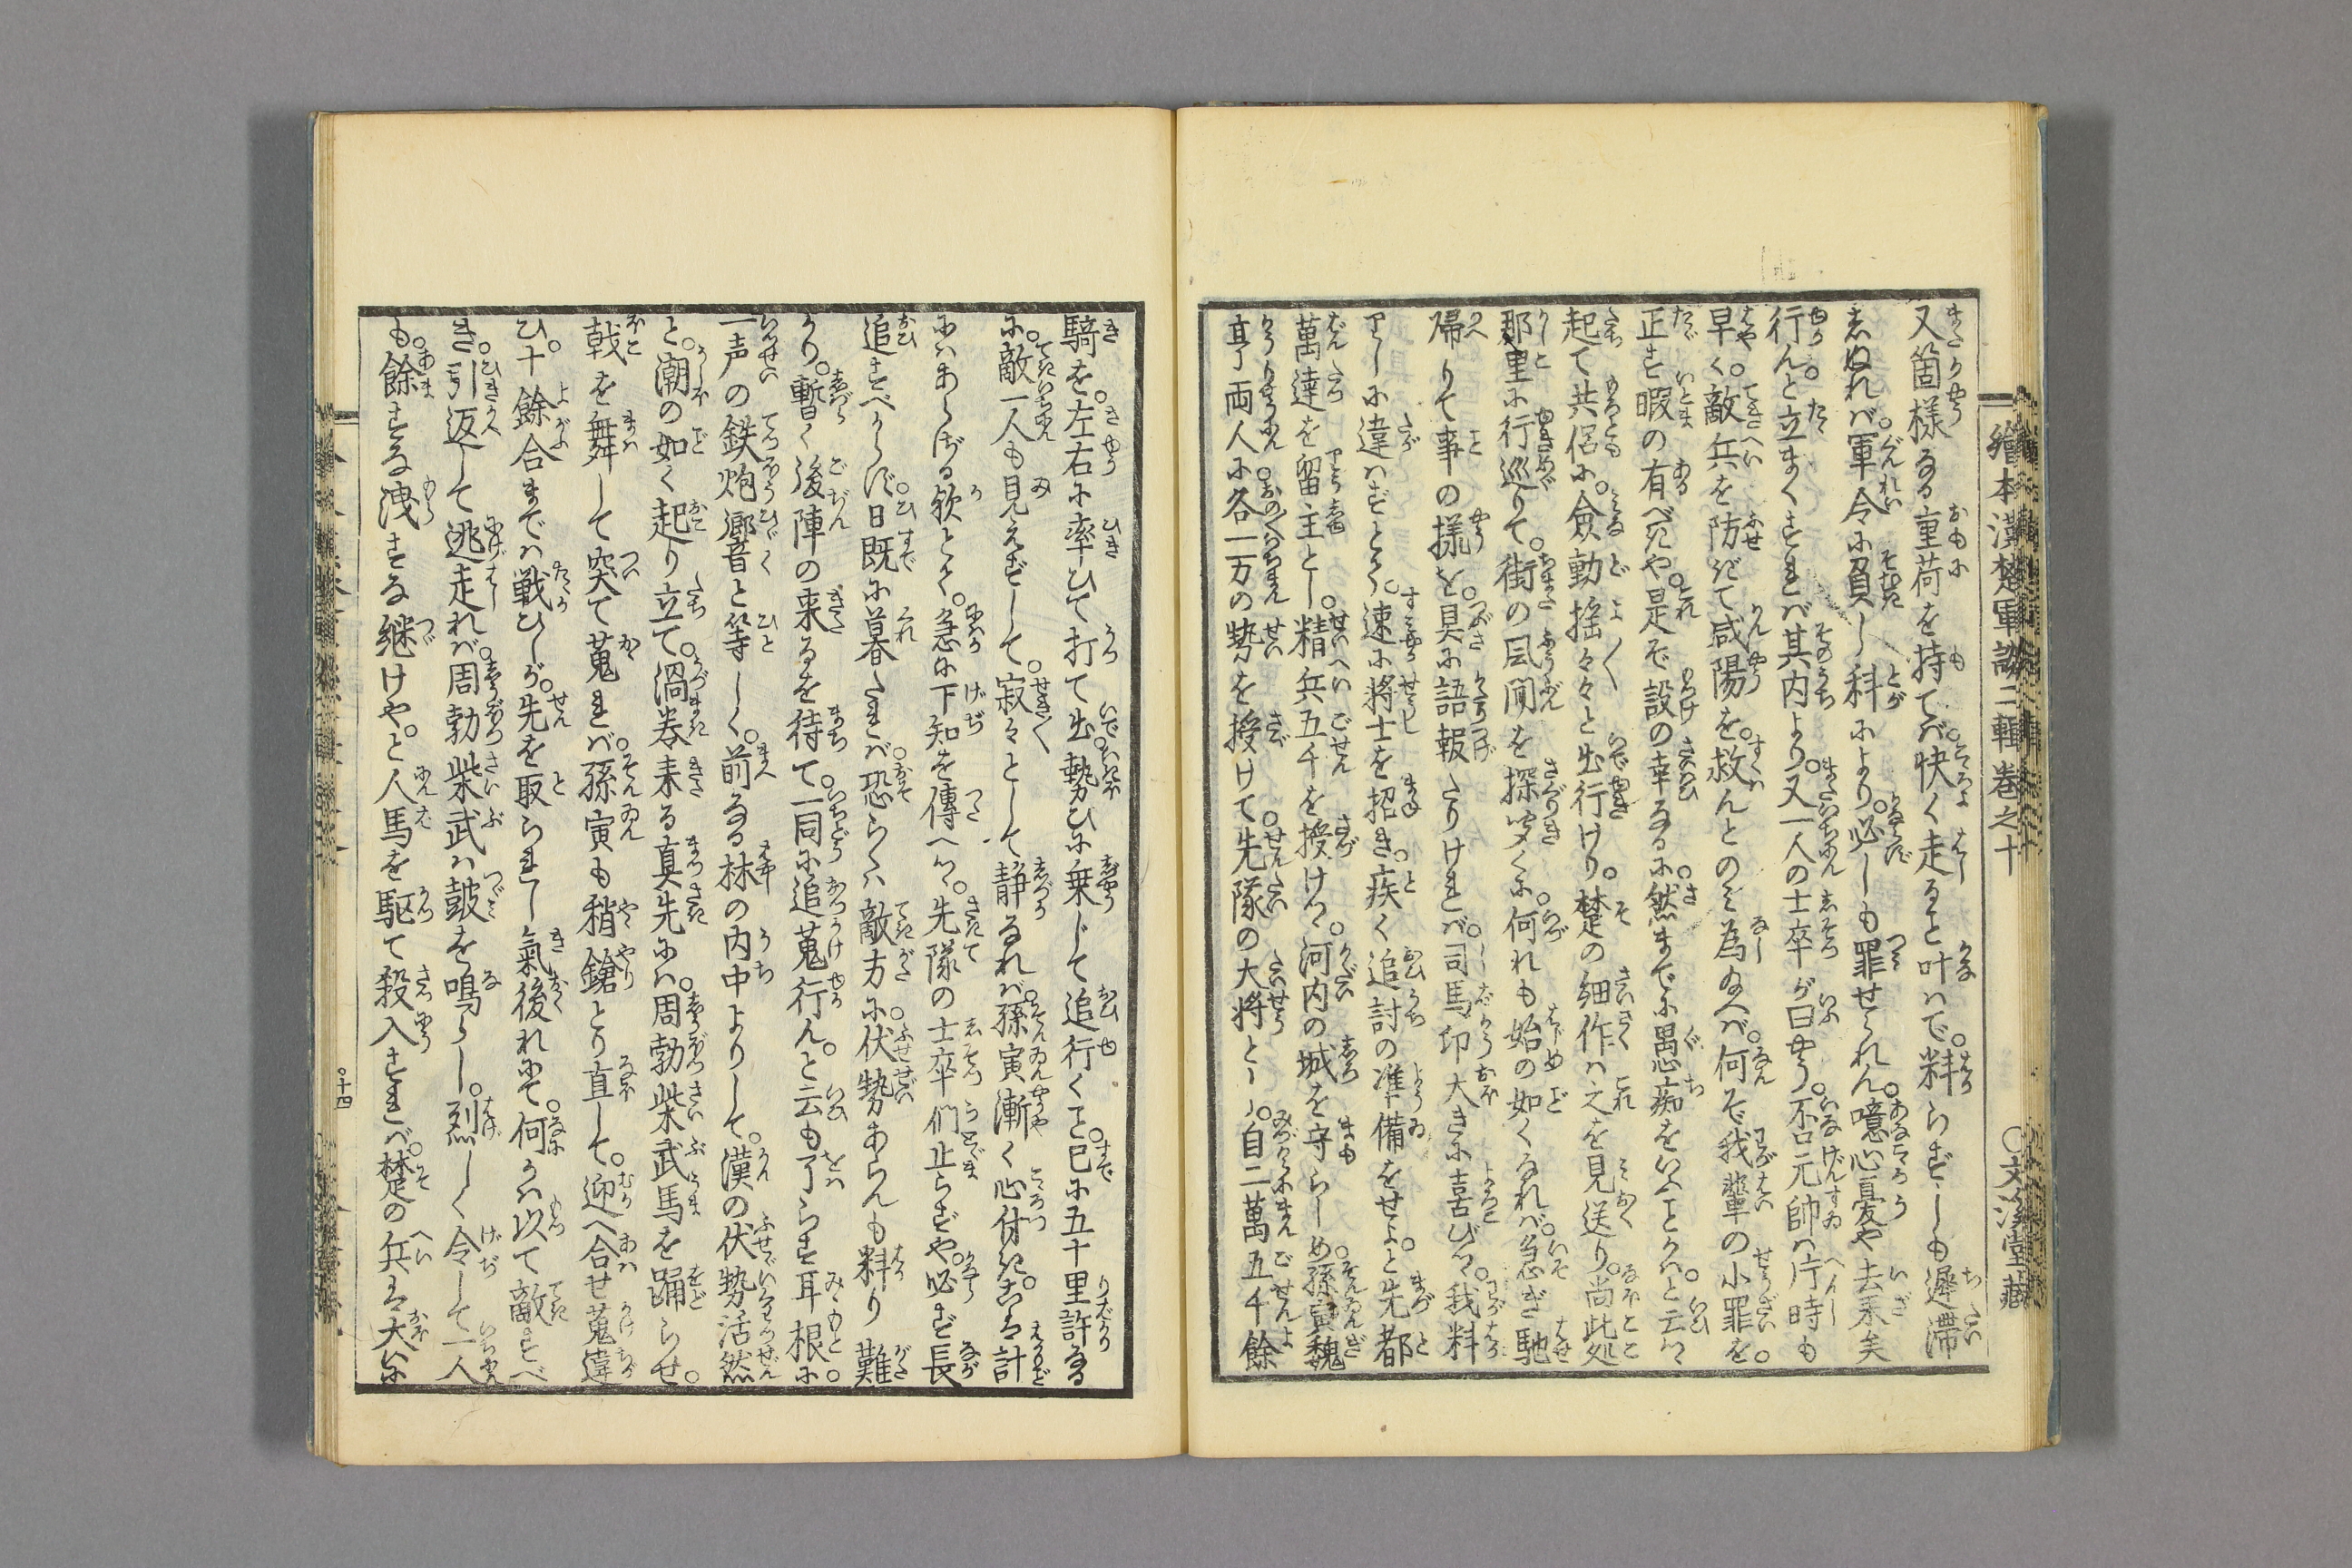 繪本漢楚軍談二輯巻之十　〇文溪堂藏
又箇様なる重荷を持てバ。快く走ること叶ハで。料らずしも遲滯
しぬれバ。軍令に負し科により。必しも罪せられん。噫心憂や去来矣
行んと立まくすれバ。其内より。又一人の士卒が曰やう。否元帥ハ片時も
早く。敵兵を防ぎて咸陽を。救んとのミ為ゐへバ。何ぞ我輩の小罪を。
正す暇の有べきや。是ぞ設の幸なるに。然までに愚痴をいふことかハ。と云つゝ
起て共侶に。僉動揺々々と出行けり。楚の細作ハ之を見送り。尚此処
那里に行巡りて。街の風聞を探り聞くに。何れも始の如くなれバ。急ぎ馳
帰りて事の様を。具に語報たりけれバ。司馬卬大きに喜びつゝ。我料
りしに違ハずとて。速に將士を招き。疾く追討の准備をせよ。と先都
萬達を留主とし。精兵五千を授けつゝ。河内の城を守らしめ。孫寅魏
亨両人に各一万の勢を授けて。先隊の大将とし。自二萬五千餘
騎を。左右に率ひて打て出。勢ひに乗じて追行くこと。已に五十里許なる
に。敵一人も見えずして。寂々として静なれバ。孫寅漸く心付き。こハ計
にハあらざる欤とく。急に下知を傳へつゝ。先隊の士卒們止らずや。必ず長
追すべからず。日既に暮たれバ。恐らくハ敵方に。伏勢あらんも料り難
かり。暫く後陣の来るを待て。一同に追蒐行ん。と云も了らず耳根に。
一声の鉄炮響くと等しく。前なる林の内中よりして。漢の伏勢活然
と。潮の如く起り立て。渦巻来る真先にハ。周勃柴武馬を踊らせ。
戟を舞して突て蒐れバ。孫寅も稍鎗とり直して。迎へ合せ蒐違
ひ。十餘合までハ戦ひしが。先を取られし氣後れにて。何かハ以て敵すべ
き。引返して逃走れバ。周勃柴武ハ皷を鳴らし。烈しく令して一人
も。餘すな洩すな継けや。と人馬を駆て殺入すれバ。楚の兵ハ大に
十四